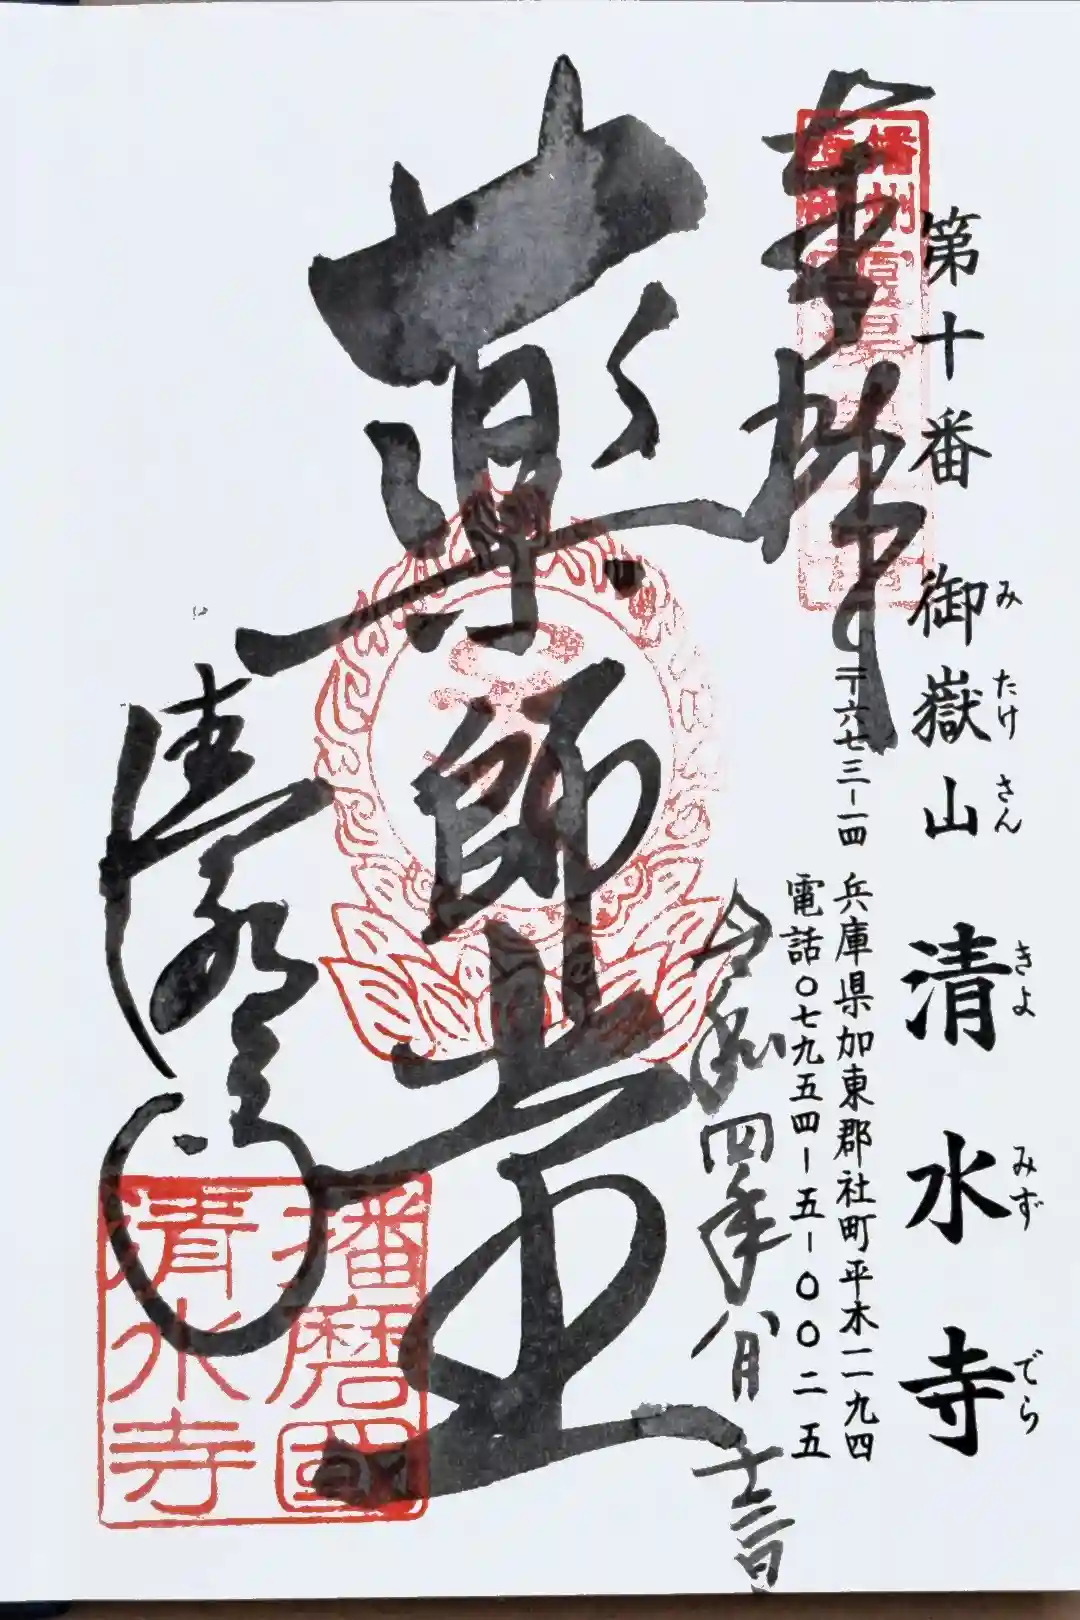 みたけさん きよみずでら
第十番 御嶽山 清水寺
〒六七三-一四 兵庫県加東郡社町平木一一九四
電話〇七九五四-五-〇〇二五
奉拝
播州
令和四年八月十三日
薬師堂
清水寺
播磨国
清水寺